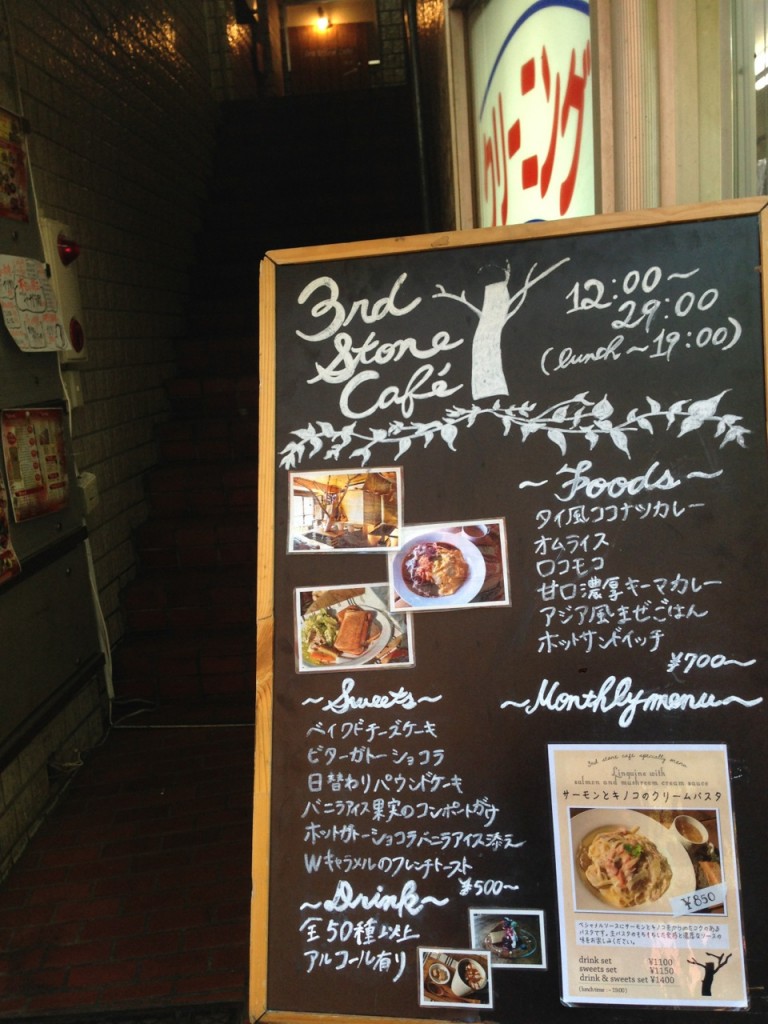 クリーニング
3rd
Stone
Café
12:00~
29:00
(lunch ~19:00)
~Foods~
タイ風ココナツカレー
オムライス
ロコモコ
甘口濃厚キーマカレー
アジア風まぜごはん
ホットサンドイッチ
¥700~
~Sweets~
ベイクドチーズケーキ
ビターガトーショコラ
日替わりパウンドケーキ
バニラアイス果実のコンポートがけ
ホットガトーショコラバニラアイス添え
Wキャラメルのフレンチトースト
¥500~
~Drink~
全50種以上
アルコール有り
~Monthly menu~
3rd stone cafe specialty menu
Linguine with
salmon and mushroom cream sauce
サーモンとキノコのクリームパスタ
¥850
ベシャメルソースにサーモンとキノコを
パスタです。生パスタのもちもちした食感と濃厚なソースの
味をお楽しみください。
drink set ¥1100
sweets set ¥1150
drink & sweets set ¥1400